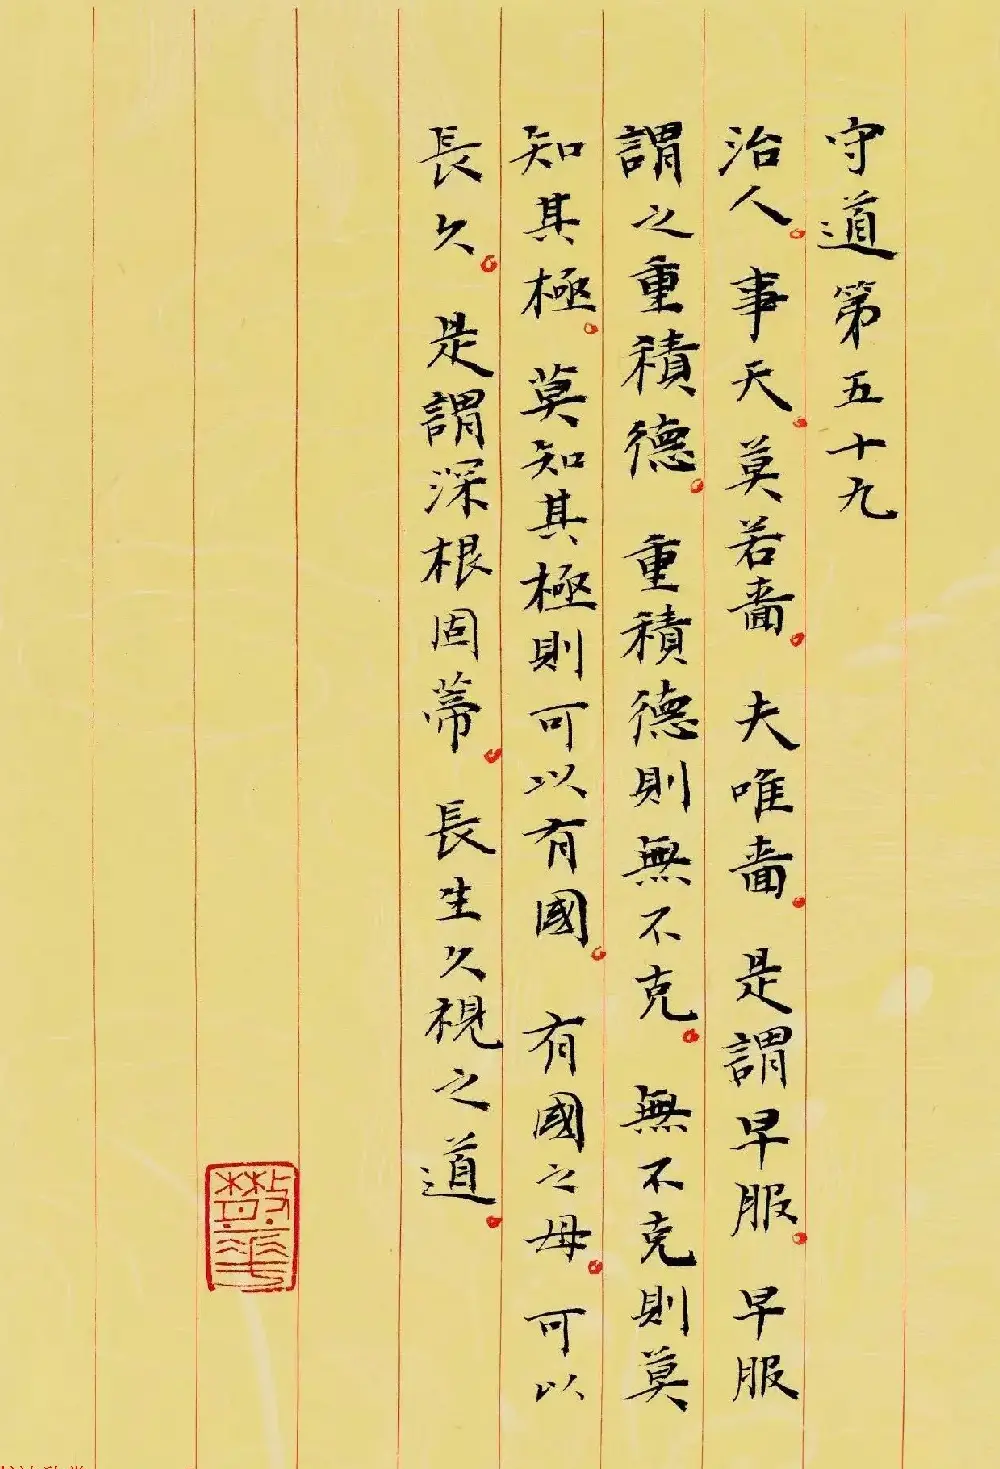 守道第五十九
治人。事天。莫若嗇。夫唯嗇。是謂早服。早服
謂之重積德。重積德則無不克。無不克則莫
知其極。莫知其極則可以有國。有國之母。可以
長久。是謂深根固蒂。長生久視之道。